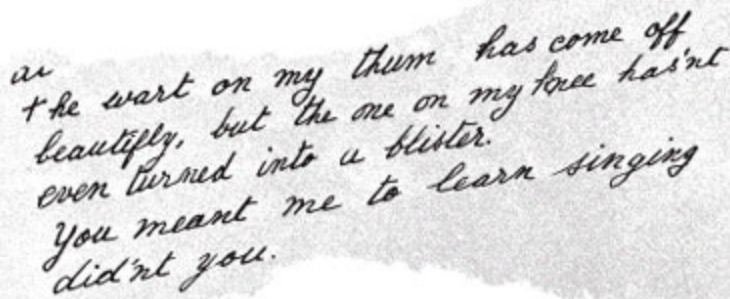 the wart on my thum has come off
beautifly, but the one on my knee has'nt
even turned into a blister.
You meant me to learn singing
did'nt you.